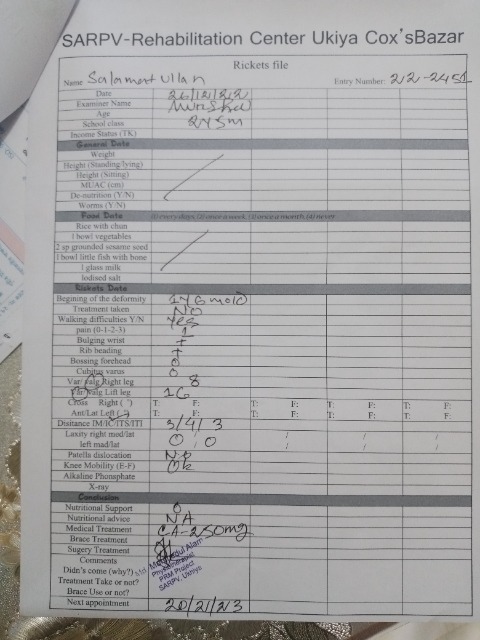 SARPV-Rehabilitation Center Ukiya Cox'sBazar
Rickets file
Name Salamat Ullah Entry Number: 22-2451
Date 26/12/22
Examiner Name
Age 2Y5m
School class
Income Status (TK)
General Date
Weight
Height (Standing/lying)
Height (Sitting)
MUAC (cm)
De-nutrition (Y/N)
Worms (Y/N)
Food Date (3) everydays, (2) once a week, (1) once a month, (4) never
Rice with chun
1 bowl vegetables
2 sp grounded sesame seed
1 bowl little fish with bone
1 glass milk
Iodised salt
Rickets Date
Begining of the deformity 1Y6mold
Treatment taken NO
Walking difficulties Y/N Yes
pain (0-1-2-3) 1
Bulging wrist +
Rib beading +
Bossing forehead 0
Cubitus varus 0
Var/valg Right leg 8
Var/valg Lift leg 16
Cross Right ( ) T: F: T: F: T: F: T: F:
Ant/Lat Left ( ) T: F: T: F: T: F: T: F:
Disitance IM/IC/ITS/ITI 3/4/3
Laxity right med/lat 0/0 / / /
left mad/lat / / /
Patella dislocation No
Knee Mobility (E-F) Ok
Alkaline Phonsphate
X-ray
Conclusion
Nutritional Support 0
Nutritional advice NA
Medical Treatment CA-250mg
Brace Treatment
Sugery Treatment
Comments
Didn's come (why?)
Treatment Take or not?
Brace Use or not?
Alam
PRM Project
SARPV, Ukhiya
Next appointment 20/2/23